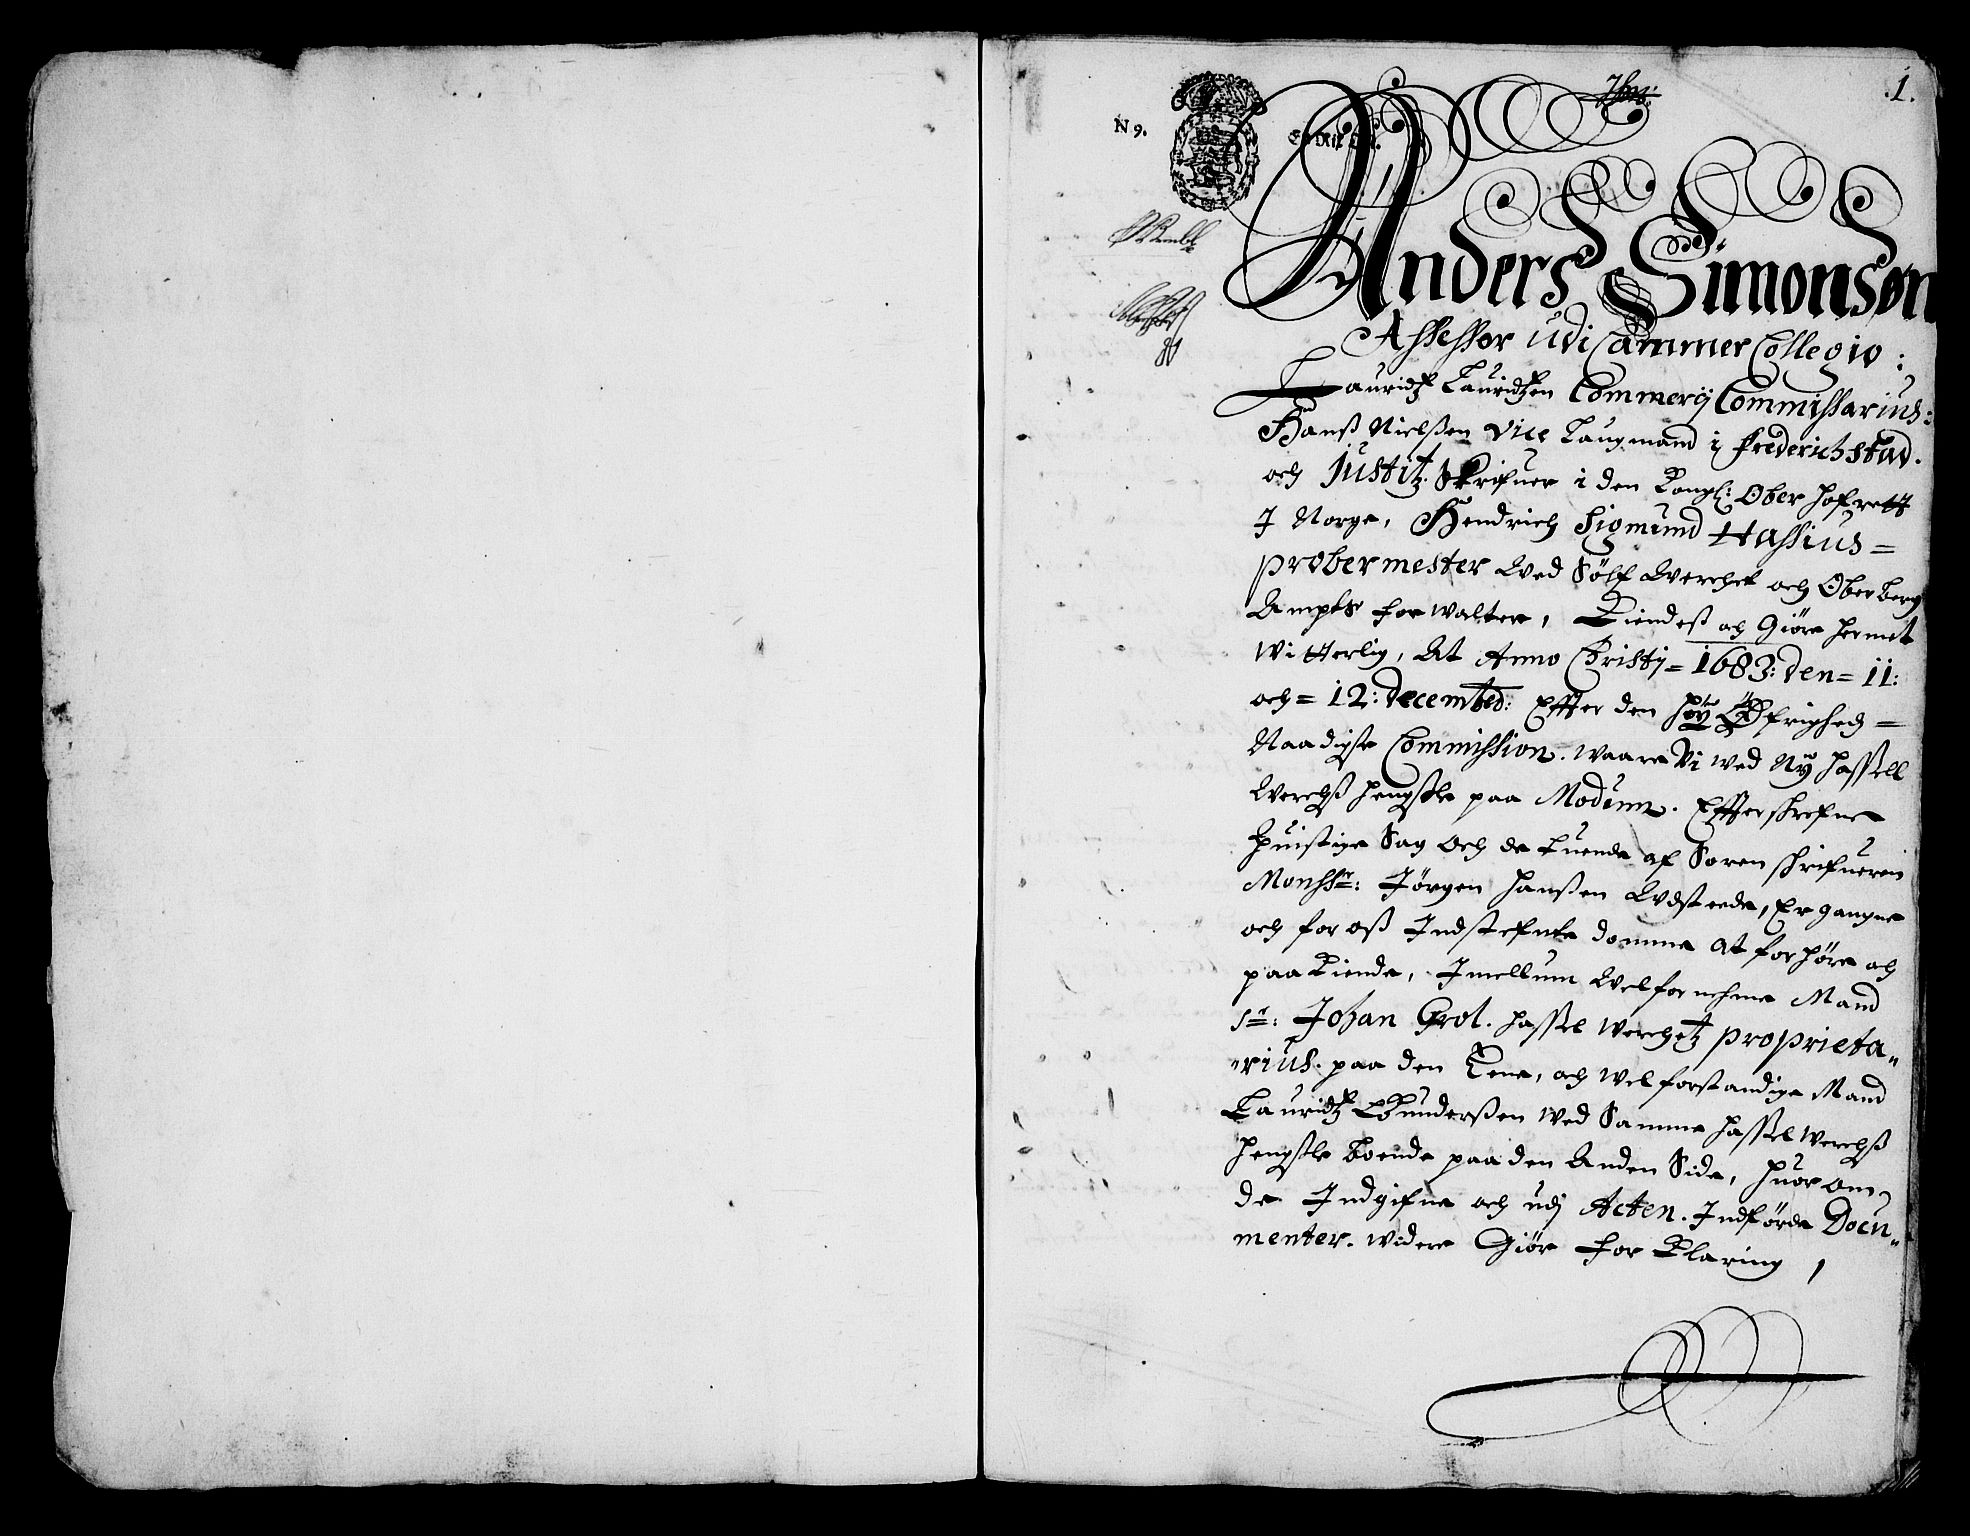 1.
N 9.
Anders Simonsøn
Assessor udi Cammer Collegio:
Lauridtz Lauridtzen Commercij Commissarius:
Hanss Nielssen Vice Laugmand i Frederichstad.
och Justitz Skrifuer i den Kongl: Ober Hofrett
J Norge, Hendrich Sigmund Hassius =
probermester Wed Sölf Werchet och Ober Berg
Ampts forwalter, Kiendess och Giöre hermet
Witterlig, At Anno Christij = 1683: den = 11:
och = 12: decembed: Effter den höy Öfrighed =
Naadigste Commission. waare Vi wed Ny Hassell
Werchss Hengstle paa Modumb. Effterskrefne
Tuistige Sag och de Luende af Soren skrifueren
Monssr: Jörgen Hanssen Udsteede, Ergangne
och for oss Indstefnte domme at forhöre och
paakiende, Imellum Welfornehme Mand
Sr: Johan Grot. Hassel Werchetz proprieta„
„rius. paa den Eene, och Welforstandige Mand
Lauridtz Gunderssen Wed Samme Hassel Werchss
Hengstle Boende paa den Anden Side, huor om
de Indgifne och udj Acten. Indförde Docu„
menter. widere Giör forklaring,